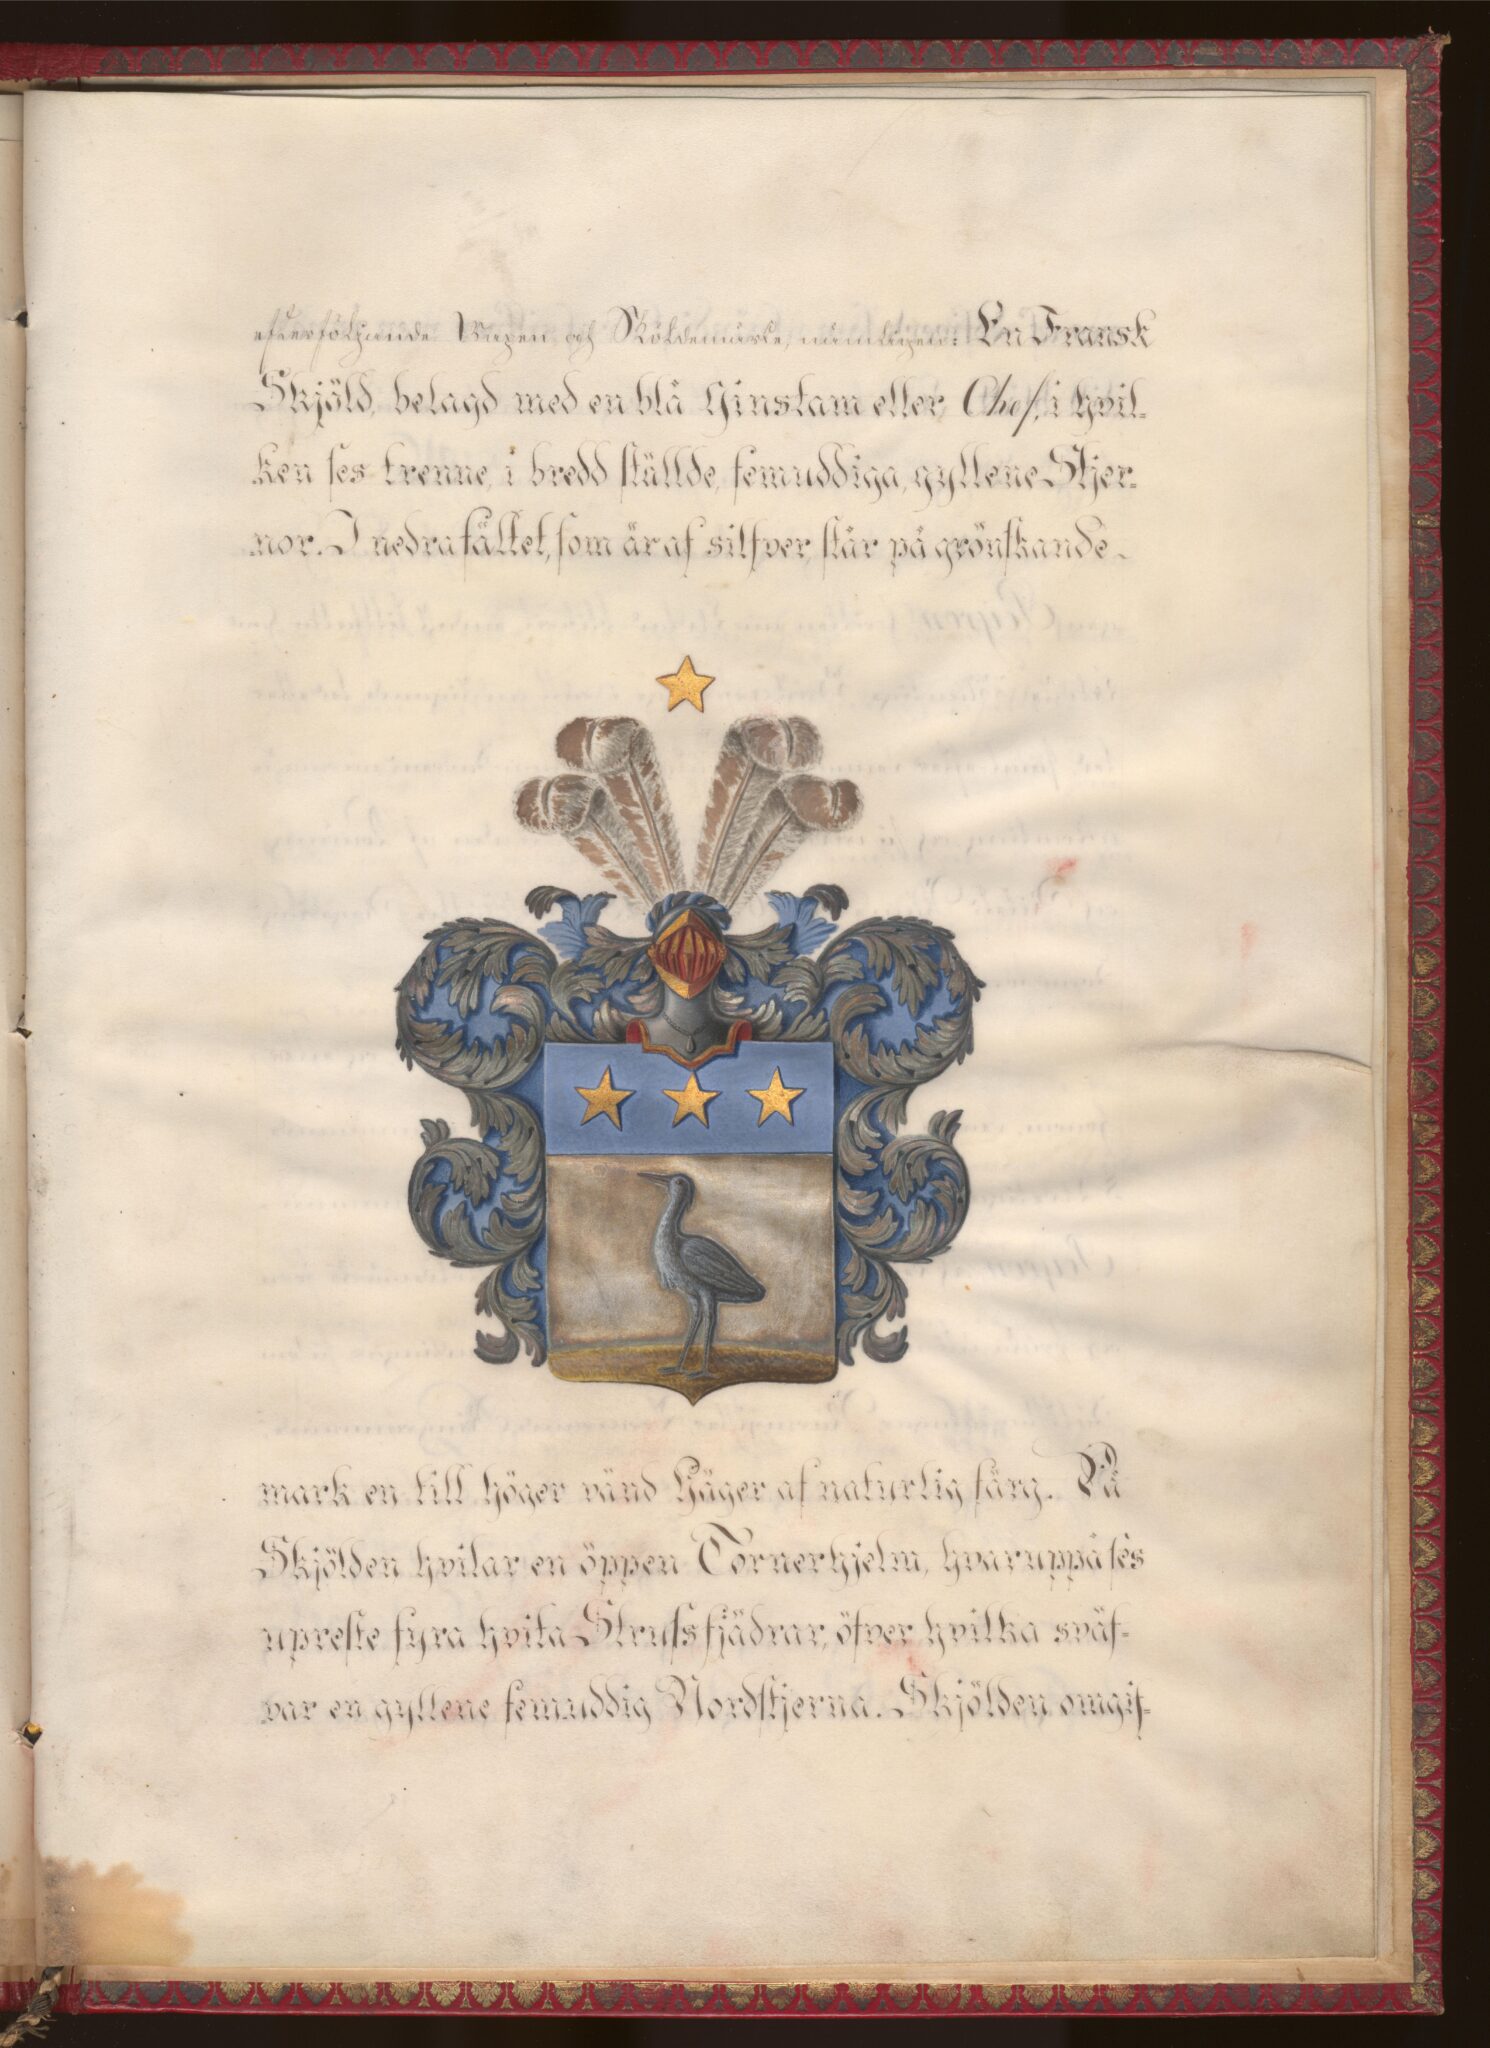 efterföljande Wapen och Sköldemärke, nämligen: En Fransk
Skjöld, belagd med en blå Ginstam eller Chef, i hvil-
ken ses trenne, i bredd ställde, femuddiga, gyllene Stjer-
nor. I nedra fältet, som är af silfver, står på grönskande
mark en till höger vänd Häger af naturlig färg. På
Skjölden hvilar en öppen Tornerhjelm, hvaruppå ses
upreste fyra hvita Strutsfjädrar, öfver hvilka sväf-
var en gyllene femuddig Nordstjerna. Skjölden omgif-